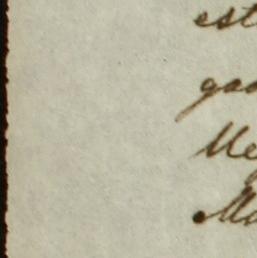 est
gaa
Me
Ma